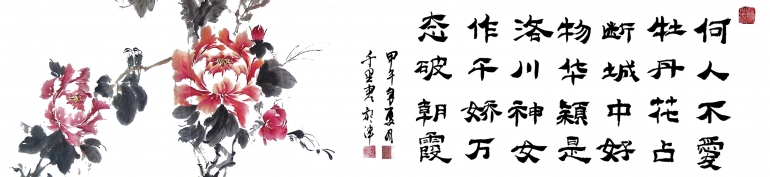 何人不愛
牡丹花占
断城中好
物华颖是
洛川神女
作千娇万
态破朝霞
甲午年夏月